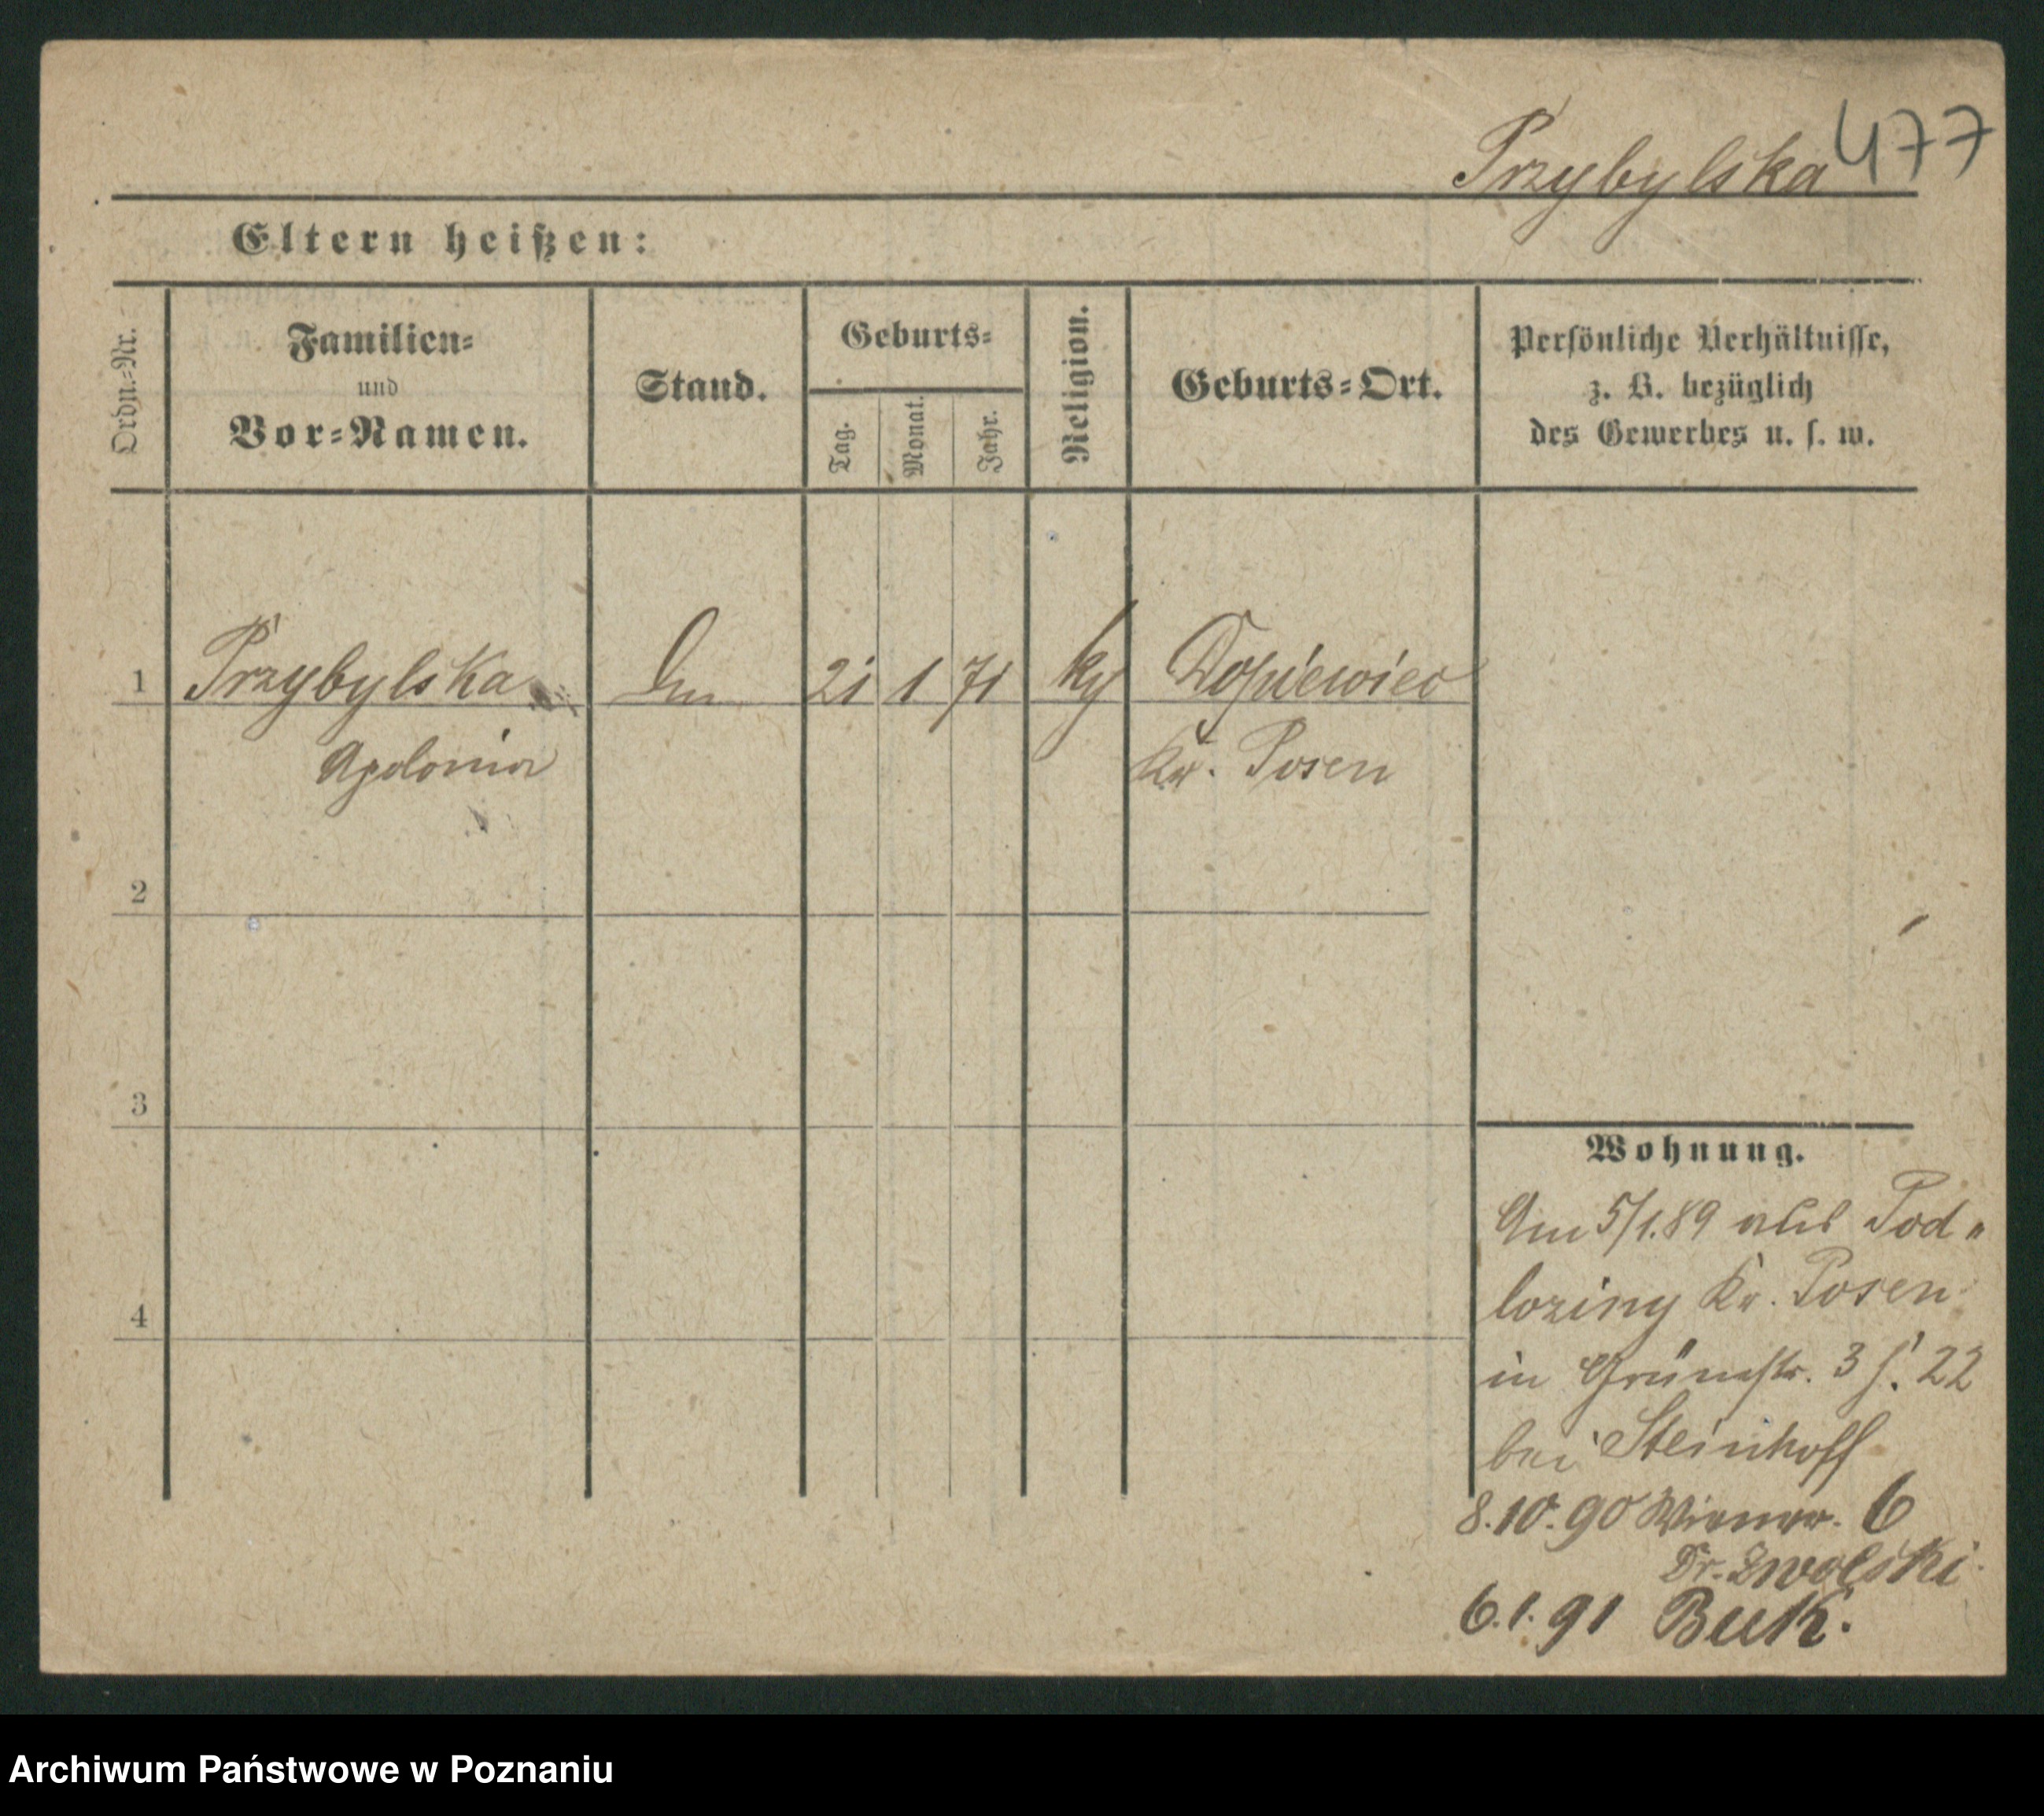 477
Przybylska
Eltern heißen:
Ordn.-Nr.
Familien-
und
Vor-Namen.
Stand.
Geburts-
Tag.
Monat.
Jahr.
Religion.
Geburts-Ort.
Persönliche Verhältnisse,
z. B. bezüglich
des Gewerbes u. s. w.
1 Przybylska 21 1 71 Dopiewiec
Apolonia Kr. Posen
2
3
4
Wohnung.
Am 5/1.89 aus Pod-
loziny Kr. Posen
in Grünestr. 3 22
bei Steinhoff
8.10.90 Wienerstr. 6
Dr. Zwolski
6.1.91 Buk.
Archiwum Państwowe w Poznaniu